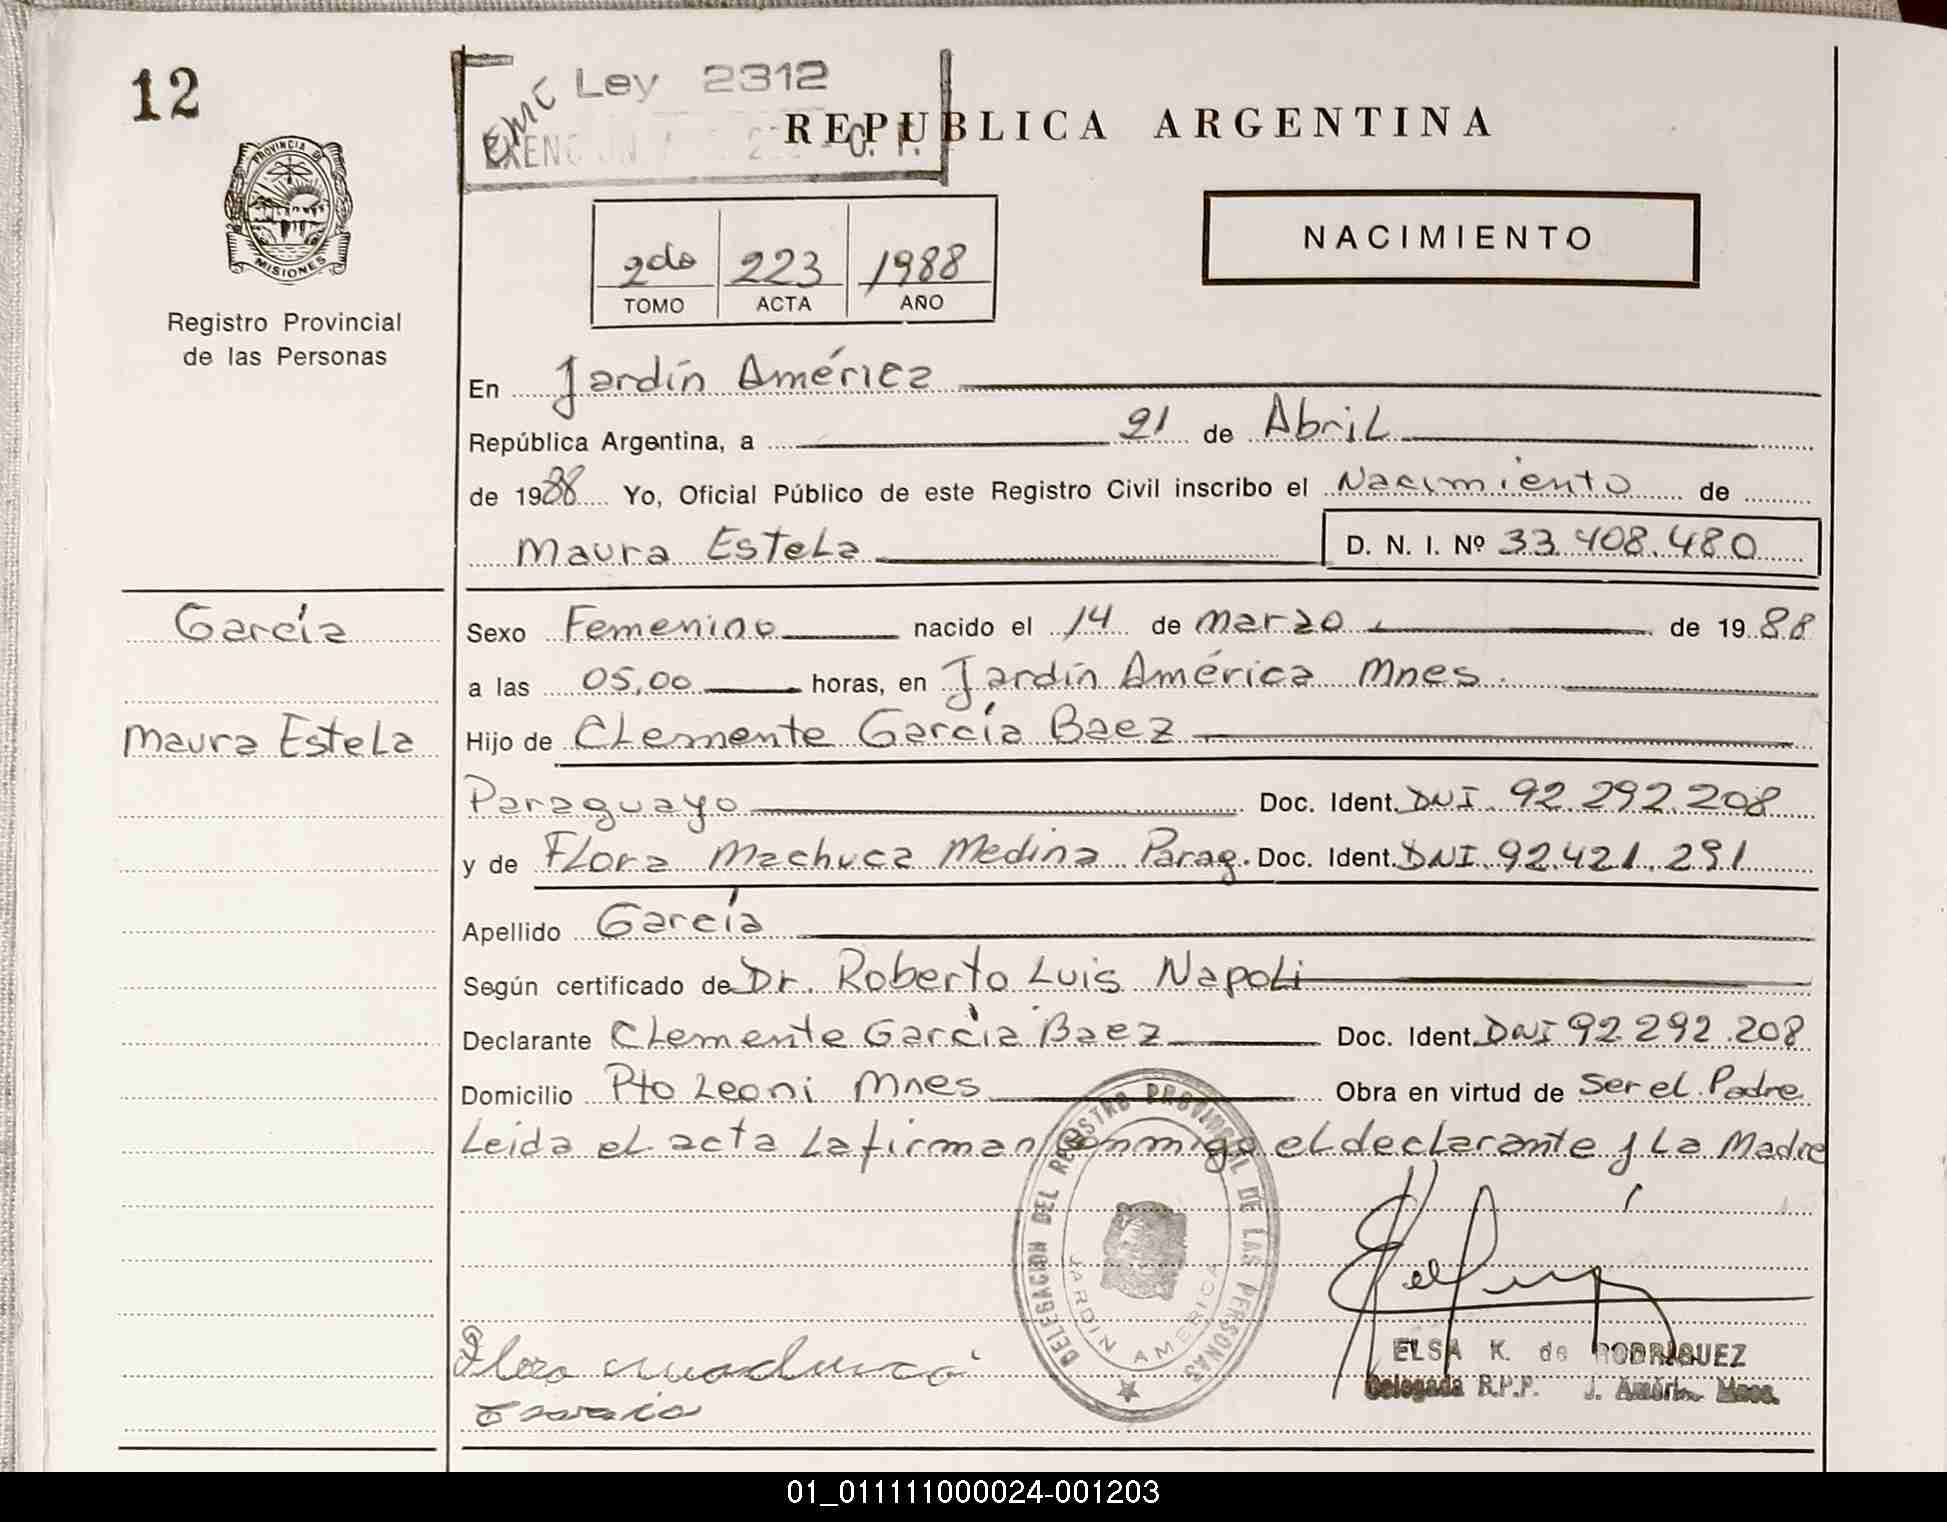 12
Ley 2312
REPUBLICA ARGENTINA
PROVINCIA DE
MISIONES
Registro Provincial
de las Personas
2do 223 1988
TOMO ACTA AÑO
NACIMIENTO
En Jardín América
República Argentina, a 21 de Abril
de 1988 Yo, Oficial Público de este Registro Civil inscribo el Nacimiento de
Maura Estela D. N. I. Nº 33.408.480
García
Sexo Femenino nacido el 14 de marzo de 1988
a las 05,00 horas, en Jardín América Mnes.
Maura Estela
Hijo de Clemente García Baez
Paraguayo Doc. Ident. DNI. 92.292.208
y de Flora Machuca Medina Parag. Doc. Ident. DNI. 92.421.291
Apellido García
Según certificado de Dr. Roberto Luis Napoli
Declarante Clemente García Baez Doc. Ident. DNI 92.292.208
Domicilio Pto Leoni Mnes Obra en virtud de ser el Padre
Leida el acta la firman conmigo el declarante y La Madre
DELEGACION DEL REGISTRO PROVINCIAL DE LAS PERSONAS
JARDIN AMERICA
ELSA K. de RODRIGUEZ
Delegada R.P.P. J. América Mnes.
01_011111000024-001203